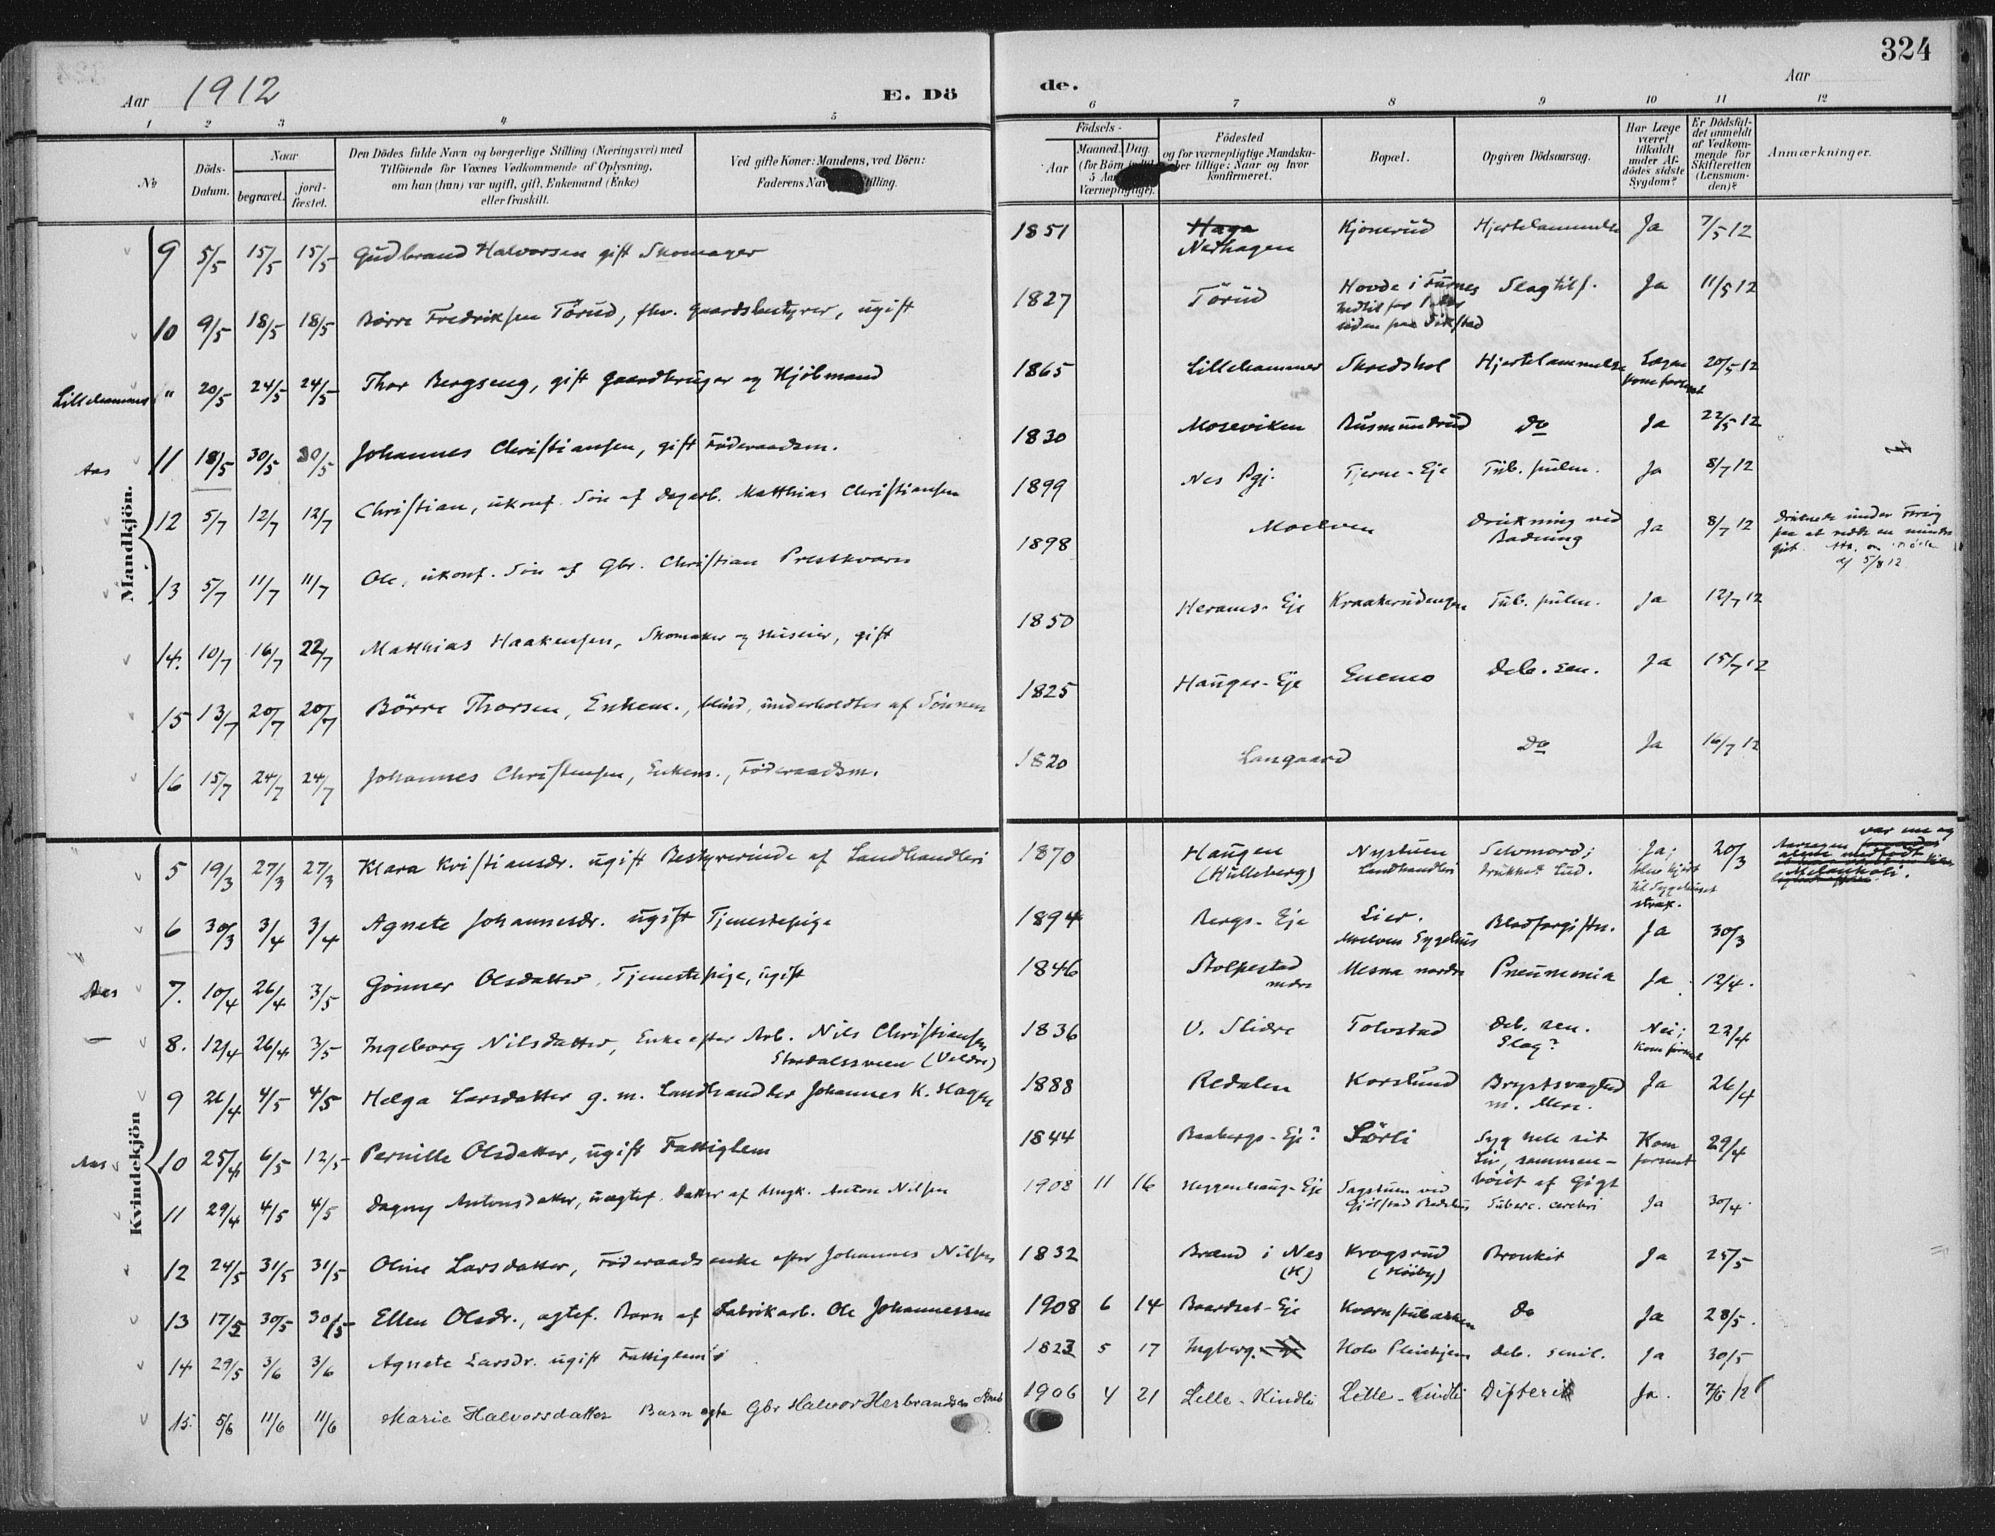 324
Aar 1912
E. Dö
de.
Aar
1 2 3 4 5 6 7 8 9 10 11 12
No
Döds-Datum.
Naar
begravet.
jord-fæstet.
Den Dödes fulde Navn og borgerlige Stilling (Næringsvei) med
Tilföiende for Voxnes Vedkommende af Oplysning,
om han (hun) var ugift, gift, Enkemand (Enke)
eller fraskilt.
Ved gifte Koner: Mandens, ved Börn:
Faderens Navn Stilling.
Födsels-
Aar
Maaned. Dag.
(for Börn indtil
5 Aar
Værnepligtige).
Födested
og for værnepligtige Mandska-
ber tillige: Naar og hvor
konfirmeret.
Bopæl.
Opgiven Dödsaarsag.
Har Læge
været
tilkaldt
under Af-
dödes sidste
Sygdom?
Er Dödsfal-
det anmeldt
af Vedkom-
mende for
Skifteretten
(Lensman-
den)?
Anmærkninger.
Mandkjön.
9 5/5 15/5 15/5 Gudbrand Halvorsen gift Skomager 1851 Haga Nedhagen Kjonerud Hjertelammelse Ja 7/5 12
10 9/5 18/5 18/5 Börre Fredriksen Törud, fhv. Gaardsbestyrer, ugift 1827 Törud Hovde i Furnes Slagtilf. Ja 11/5 12
Lillehammer " 20/5 24/5 24/5 Thor Bergseng, gift Gaardbruger og Hjölmand 1865 Lillehammer Skredshol Hjertelammelse 20/5 12
Aas 11 18/5 30/5 30/5 Johannes Christiansen, gift Föderaadsm. 1830 Moseviken Rusmundrud Do Ja 22/5 12
12 5/7 12/7 12/7 Christian, ukonf. Sön af Dagarb. Matthias Christiansen 1899 Nes Pgj. Tjerne-Eje Tub. pulm. Ja 8/7 12
13 5/7 11/7 11/7 Ole, ukonf. Sön af Gbr. Christian Prestkvarn 1898 Moelven Drukning ved Badning Ja 8/7 12 Druknede under Forsög paa at redde en mindre gut. 5/8 12
14. 10/7 16/7 22/7 Matthias Haakensen, Skomaker og Huseier, gift 1850 Herams-Eje Kraakerudengen Tub. pulm. Ja 12/7 12
15 13/7 20/7 20/7 Börre Thorsen, Enkem., blind, underholdtes af Sönnen 1825 Hauger-Eje Enemo Deb. sen. Ja 15/7 12
16 15/7 24/7 24/7 Johannes Christensen, Enkem., Föderaadsm. 1820 Langaard Do Ja 16/7 12
Kvindekjön
5 19/3 27/3 27/3 Klara Kristiansdr. ugift Bestyrerinde af Landhandleri 1870 Haugen (Hulleberg) Nystuen Landhandleri Selvmord; drukket Lud. Ja; blev kjört til Sygehuset strax. 20/3 var Melankoli.
6 30/3 3/4 3/4 Agnete Johannesdr. ugift Tjenestepige 1894 Bergs-Eje Lier. Moelven Sygehus Blodforgiftn. Ja 30/3
Aas 7. 10/4 26/4 3/5 Gunner Olsdatter, Tjenestepige, ugift 1846 Stolpestad ndre Mesna nordre Pneumonia Ja 12/4.
— 8. 12/4 26/4 3/5 Ingeborg Nilsdatter, Enke efter Arb. Nils Christiansen Stordalssveen (Veldre) 1836 V. Slidre Tolvstad Deb. sen. Slag? Nei; Kom forsent 22/4
9 26/4 4/5 4/5 Helga Larsdatter g. m. Landhandler Johannes K. Hagen 1888 Redalen Korslund Brystsvaghed m. Mere. Ja 26/4
Aas 10 25/4 6/5 12/5 Pernille Olsdatter, ugift Fattiglem 1844 Baabergs-Eje? Sörli Syg hele sit Liv, sammen- böiet af Gigt Kom forsent 29/4
11 29/4 4/5 4/5 Dagny Antonsdatter, uægtef. Datter af Ungk. Anton Nilsen 1908 11 16 Heggenhaug-Eje Sagstuen ved Tuberc. cerebri Ja 30/4
12 24/5 31/5 31/5 Oline Larsdatter, Föderaadsenke efter Johannes Nilsen 1832 Brænd i Nes (H) Krogsrud (Höiby) Bronkit Ja 25/5
13 17/5 30/5 30/5 Ellen Olsdr., ægtef. Barn af Fabrikarb. Ole Johannessen 1908 6 14 Baardset-Eje Kvernstubakken Do Ja 28/5.
14 29/5 3/6 3/6 Agnete Larsdr. ugift Fattiglem 1823 5 17 Ingberg. Holo Pleiehjem deb. senil. Ja 30/5
15. 5/6 11/6 11/6 Marie Halvorsdatter Barn ægte Gbr Halvor Herbrandsen 1906 4 21 Lille-Kindli Lille-Kindli Difteri Ja. 7/6 12